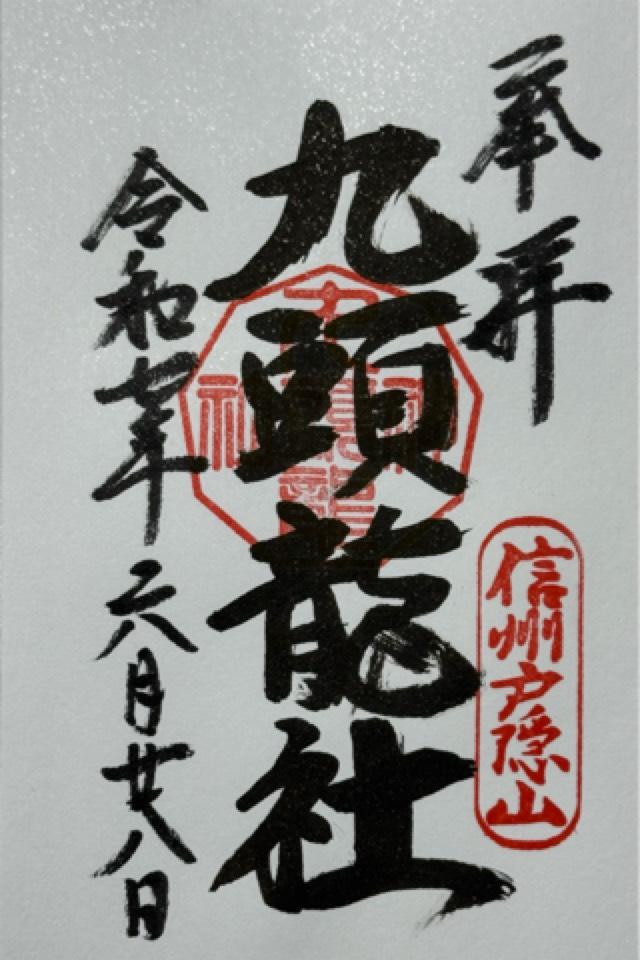 奉拝
信州戸隠山
九頭龍社
令和七年六月廿八日